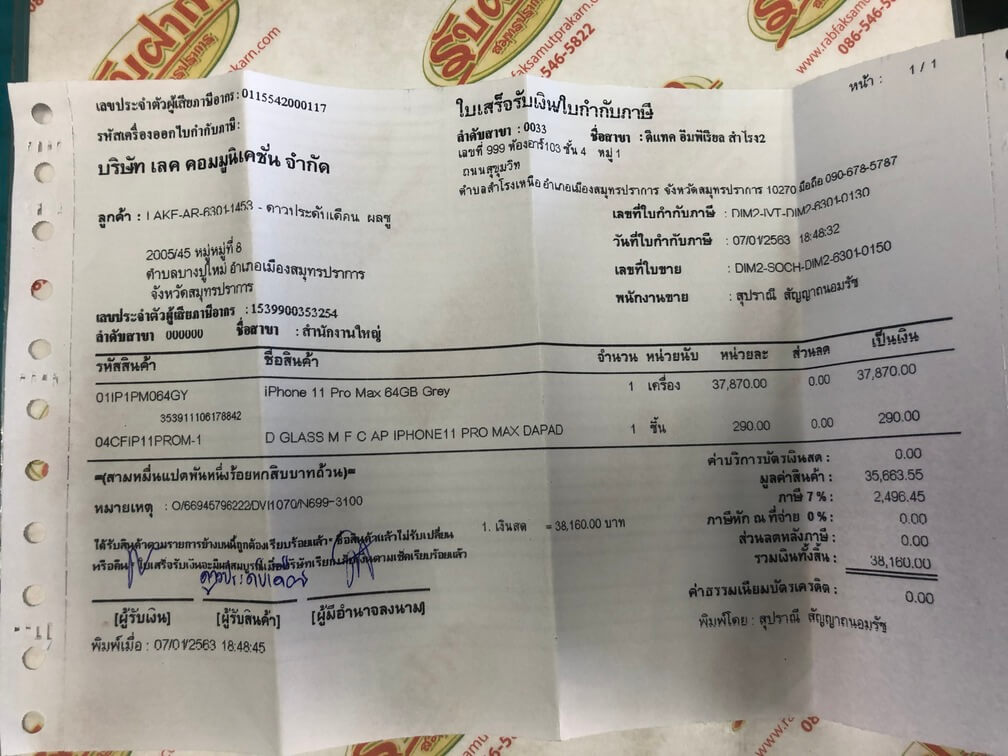 รับฝาก
สมุทรปราการ
086-546-5822
www.rabfaksamutprakarn.com
086-546-5
หน้า : 1 / 1
เลขประจำตัวผู้เสียภาษีอากร : 0115542000117
รหัสเครื่องออกใบกำกับภาษี:
บริษัท เลค คอมมูนิเคชั่น จำกัด
ใบเสร็จรับเงิน/ใบกำกับภาษี
ลำดับสาขา : 0033 ชื่อสาขา : ดีแทค อิมพีเรียล สำโรง2
เลขที่ 999 ห้องอาร์103 ชั้น 4 หมู่ 1
ถนนสุขุมวิท
ตำบลสำโรงเหนือ อำเภอเมืองสมุทรปราการ จังหวัดสมุทรปราการ 10270 มือถือ 090-678-5787
ลูกค้า : LAKF-AR-6301-1453 - ดาวประดับเดือน ผลชู
2005/45 หมู่หมู่ที่ 8
ตำบลบางปูใหม่ อำเภอเมืองสมุทรปราการ
จังหวัดสมุทรปราการ
เลขประจำตัวผู้เสียภาษีอากร : 1539900353254
ลำดับสาขา 000000 ชื่อสาขา : สำนักงานใหญ่
เลขที่ใบกำกับภาษี : DIM2-IVT-DIM2-6301-0130
วันที่ใบกำกับภาษี : 07/01/2563 18:48:32
เลขที่ใบขาย : DIM2-SOCH-DIM2-6301-0150
พนักงานขาย : สุปราณี สัญญาถนอมรัช
รหัสสินค้า ชื่อสินค้า จำนวน หน่วยนับ หน่วยละ ส่วนลด เป็นเงิน
01IP1PM064GY iPhone 11 Pro Max 64GB Grey 1 เครื่อง 37,870.00 0.00 37,870.00
353911106178842
04CFIP11PROM-1 D GLASS M F C AP IPHONE11 PRO MAX DAPAD 1 ชิ้น 290.00 0.00 290.00
=(สามหมื่นแปดพันหนึ่งร้อยหกสิบบาทถ้วน)=
หมายเหตุ : O/66945796222/DVI1070/N699-3100
1. เงินสด = 38,160.00 บาท
ค่าบริการบัตรเงินสด : 0.00
มูลค่าสินค้า : 35,663.55
ภาษี 7% : 2,496.45
ภาษีหัก ณ ที่จ่าย 0% : 0.00
ส่วนลดหลังภาษี : 0.00
รวมเงินทั้งสิ้น : 38,160.00
ค่าธรรมเนียมบัตรเครดิต : 0.00
ได้รับสินค้าตามรายการข้างบนนี้ถูกต้องเรียบร้อยแล้ว ซื้อสินค้าแล้วไม่รับเปลี่ยน
หรือคืน ใบเสร็จรับเงินจะมีผลสมบูรณ์เมื่อบริษัทเรียกเก็บเงินตามเช็คเรียบร้อยแล้ว
ดาวประดับเดือน
[ผู้รับเงิน] [ผู้รับสินค้า] [ผู้มีอำนาจลงนาม]
พิมพ์เมื่อ : 07/01/2563 18:48:45
พิมพ์โดย : สุปราณี สัญญาถนอมรัช